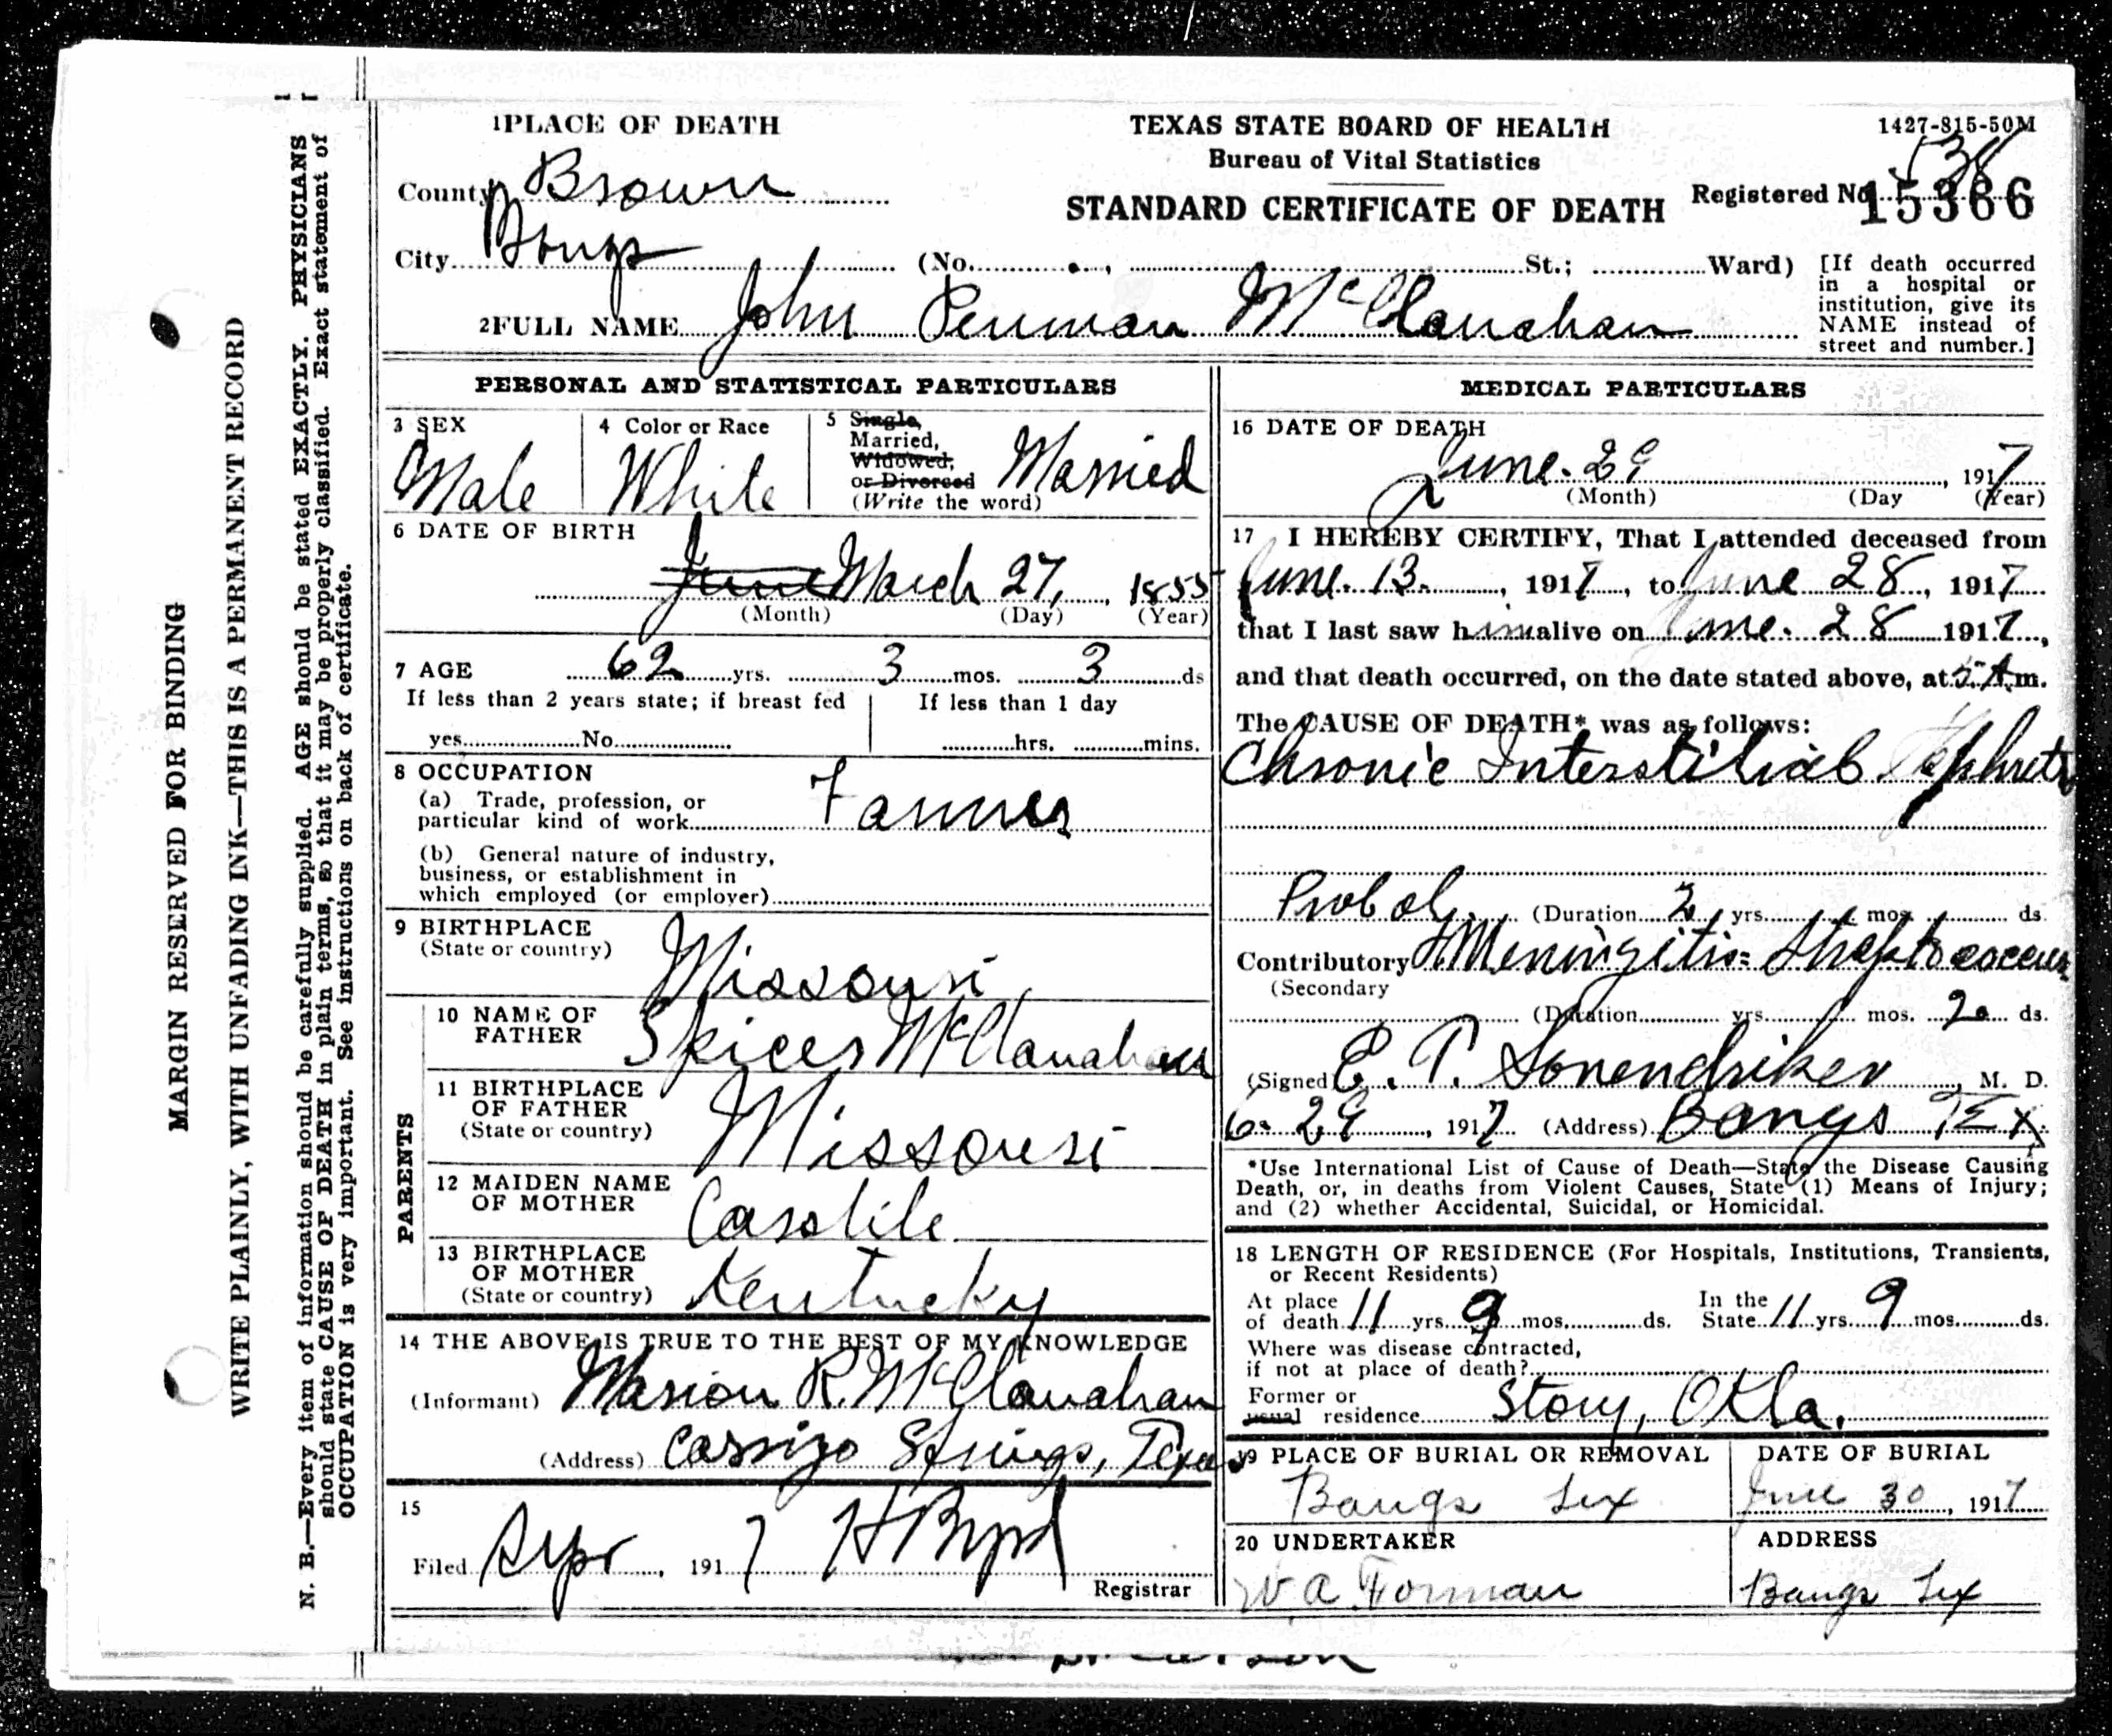 1PLACE OF DEATH
TEXAS STATE BOARD OF HEALTH
1427-815-50M
Bureau of Vital Statistics
County Brown
STANDARD CERTIFICATE OF DEATH
Registered No. 15366
538
City Bangs (No. , St.; Ward)
[If death occurred
in a hospital or
institution, give its
NAME instead of
street and number.]
2FULL NAME John Penman McClanahan
PERSONAL AND STATISTICAL PARTICULARS
3 SEX
Male
4 Color or Race
White
5 Single,
Married,
Widowed,
or Divorced
(Write the word)
Married
6 DATE OF BIRTH
June March 27, 1855
(Month) (Day) (Year)
7 AGE 62 yrs. 3 mos. 3 ds
If less than 2 years state; if breast fed
yes No
If less than 1 day
hrs. mins.
8 OCCUPATION
(a) Trade, profession, or
particular kind of work Farmer
(b) General nature of industry,
business, or establishment in
which employed (or employer)
9 BIRTHPLACE
(State or country)
Missouri
PARENTS
10 NAME OF
FATHER
Spicer McClanahan
11 BIRTHPLACE
OF FATHER
(State or country)
Missouri
12 MAIDEN NAME
OF MOTHER
Casslile
13 BIRTHPLACE
OF MOTHER
(State or country)
Kentucky
14 THE ABOVE IS TRUE TO THE BEST OF MY KNOWLEDGE
(Informant) Marion R. McClanahan
(Address) Carrizo Springs, Texas
15
Filed , 1917 H Byrd
Registrar
MEDICAL PARTICULARS
16 DATE OF DEATH
June. 29, 1917
(Month) (Day (Year)
17 I HEREBY CERTIFY, That I attended deceased from
June. 13., 1917, to June 28, 1917
that I last saw him alive on June. 28 1917,
and that death occurred, on the date stated above, at 5 A m.
The CAUSE OF DEATH* was as follows:
Chronic Interstitial Nephritis
Probably (Duration 2 yrs. mos. ds.
Contributory Meningitis: Streptococcus
(Secondary
(Duration yrs. mos. 20 ds.
(Signed) E. T. Sonendriker, M. D.
6. 29, 1917 (Address) Bangs TEX
*Use International List of Cause of Death—State the Disease Causing
Death, or, in deaths from Violent Causes, State (1) Means of Injury;
and (2) whether Accidental, Suicidal, or Homicidal.
18 LENGTH OF RESIDENCE (For Hospitals, Institutions, Transients,
or Recent Residents)
At place
of death 11 yrs. 9 mos. ds.
In the
State 11 yrs. 9 mos. ds.
Where was disease contracted,
if not at place of death?
Former or
usual residence Story, Okla.
19 PLACE OF BURIAL OR REMOVAL
Bangs Tex
DATE OF BURIAL
June 30, 1917
20 UNDERTAKER
W. A. Forman
ADDRESS
Bangs Tex
MARGIN RESERVED FOR BINDING
WRITE PLAINLY, WITH UNFADING INK—THIS IS A PERMANENT RECORD
N. B.—Every item of information should be carefully supplied. AGE should be stated EXACTLY. PHYSICIANS
should state CAUSE OF DEATH in plain terms, so that it may be properly classified. Exact statement of
OCCUPATION is very important. See instructions on back of certificate.